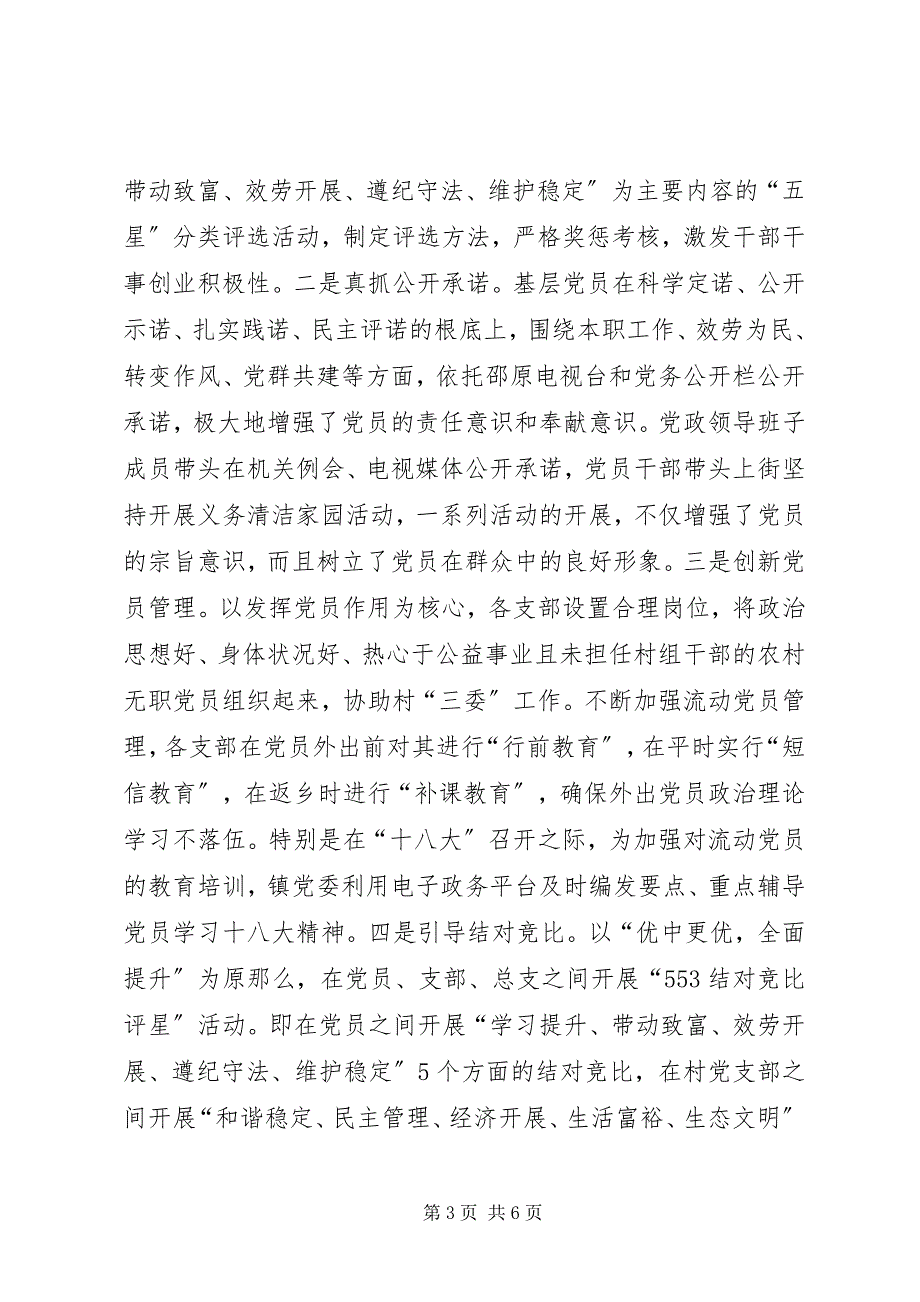 带动致富、效劳开展、遵纪守法、维护稳定〞为主要内容的“五
星〞分类评选活动，制定评选方法，严格奖惩考核，激发干部干
事创业积极性。二是真抓公开承诺。基层党员在科学定诺、公开
示诺、扎实践诺、民主评诺的根底上，围绕本职工作、效劳为民、
转变作风、党群共建等方面，依托邵原电视台和党务公开栏公开
承诺，极大地增强了党员的责任意识和奉献意识。党政领导班子
成员带头在机关例会、电视媒体公开承诺，党员干部带头上街坚
持开展义务清洁家园活动，一系列活动的开展，不仅增强了党员
的宗旨意识，而且树立了党员在群众中的良好形象。三是创新党
员管理。以发挥党员作用为核心，各支部设置合理岗位，将政治
思想好、身体状况好、热心于公益事业且未担任村组干部的农村
无职党员组织起来，协助村“三委〞工作。不断加强流动党员管
理，各支部在党员外出前对其进行“行前教育〞，在平时实行“短
信教育〞，在返乡时进行“补课教育〞，确保外出党员政治理论
学习不落伍。特别是在“十八大〞召开之际，为加强对流动党员
的教育培训，镇党委利用电子政务平台及时编发要点、重点辅导
党员学习十八大精神。四是引导结对竞比。以“优中更优，全面
提升〞为原那么，在党员、支部、总支之间开展“553 结对竞比
评星〞活动。即在党员之间开展“学习提升、带动致富、效劳开
展、遵纪守法、维护稳定〞5 个方面的结对竞比，在村党支部之
间开展“和谐稳定、民主管理、经济开展、生活富裕、生态文明〞
第 3 页 共 6 页